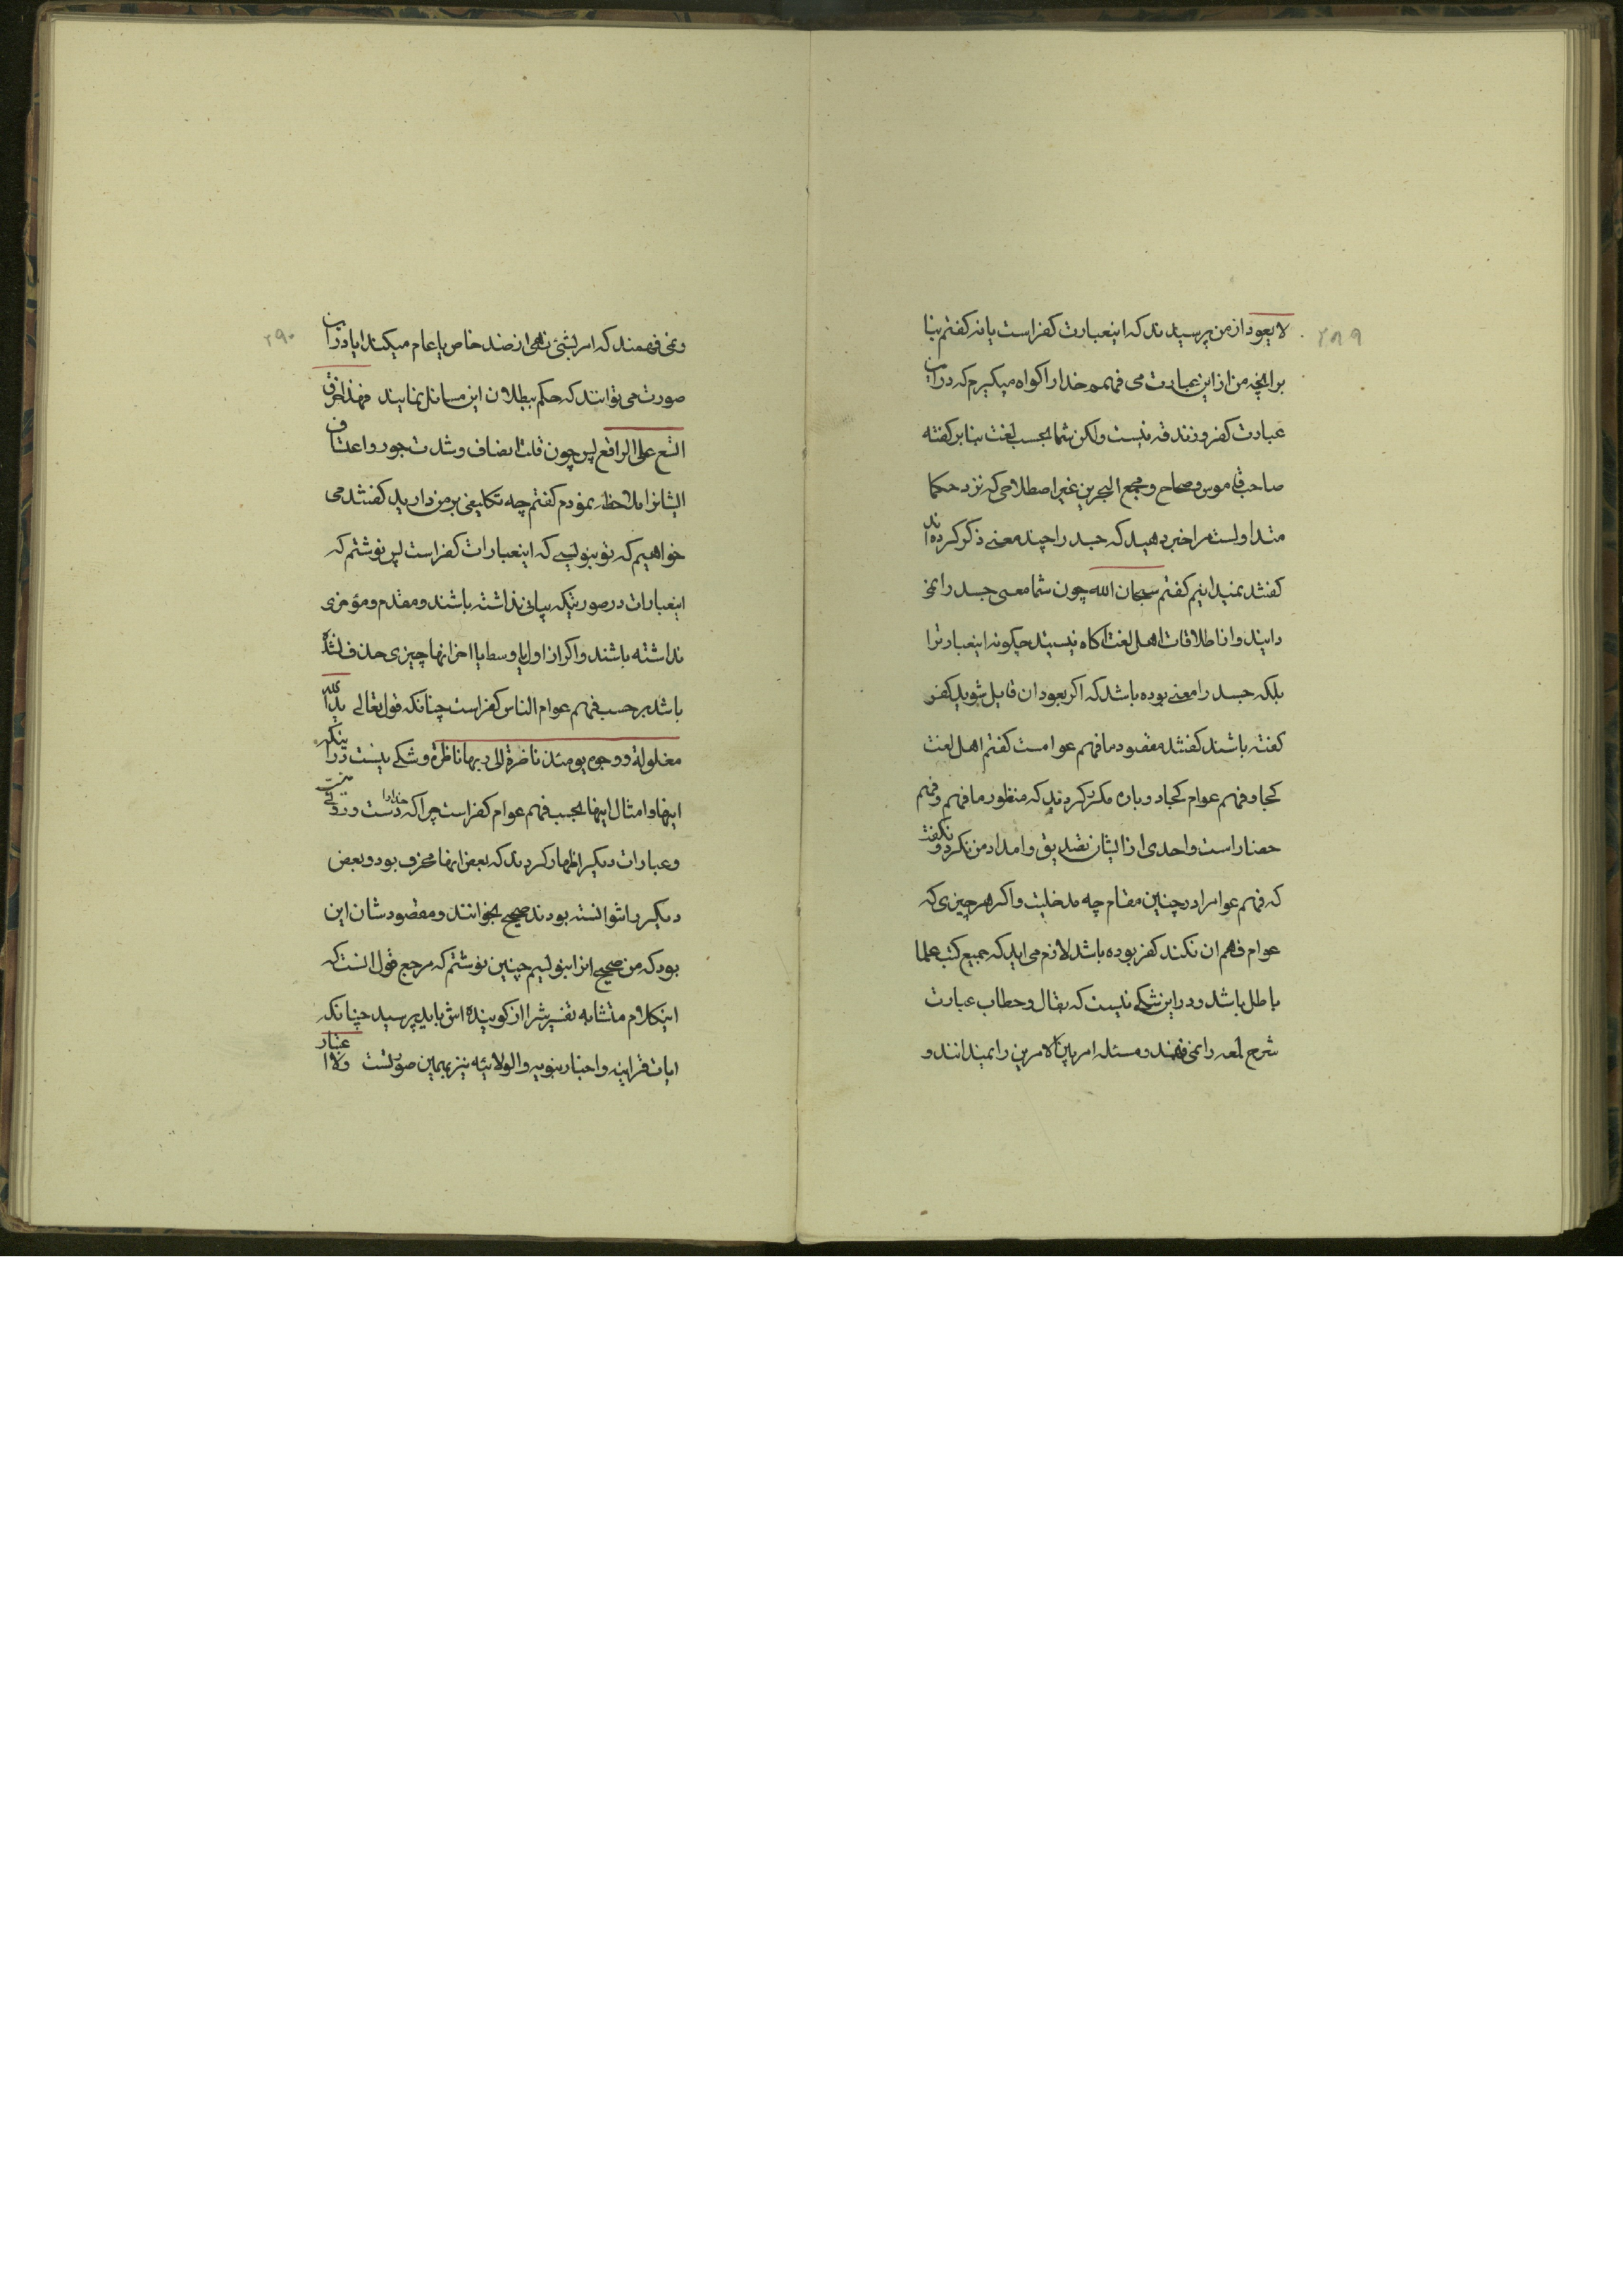 ۲۸۹
لا یعود از من پرسیدند که اینعبارت کفر است یا نه کفتم بنا
بر انچه من از این عبارت می فهمم و خدا را کواه میکیرم که در این
عبارت کفر و زندقه نیست ولکن شما بحسب لغت بنا بر کفته
صاحب قاموس و صحاح و مجمع البحرین غیر اصطلاحی که نزد حکما
متداولست مرا خبر دهید که جسد را چند معنی ذکر کرده اند
کفتند نمیدانیم کفتم سبحان الله چون شما معنی جسد را نمی
دانید و از اطلاقات اهل لغت اکاه نیستید چکونه اینعبارترا
بلکه جسد را معنی بوده باشد که اکر بعود ان قایل شوید کفر
کفته باشند کفتند مقصود ما فهم عوامست کفتم اهل لغت
کجا و فهم عوام کجا دوباره مکرر کردند که منظور ما فهم و فهم
حضار است و احدی از ایشان تصدیق و امداد من نکرد و نکفت
که فهم عوام را در چنین مقام چه مدخلیت و اکر هر چیزی که
عوام فهم ان نکند کفر بوده باشد لازم می اید که جمیع کتب علما
باطل باشد و در این شکی نیست که بقال و حطاب عبارت
شرح لمعه را نمی فهمند و مسئله امر بین الامرین را نمیدانند و
۲۹۰
و نمی فهمند که امر بشئ نهی از ضد خاص یا عام میکند ایا در این
صورت می توانند که حکم ببطلان این مسائل نمایند فهذا خرق
اتسع علی الراقع پس چون قلت انصاف و شدت جور و اعتساف
ایشانرا ملاحظه نمودم کفتم چه تکلیفی بر من دارید کفتند می
خواهیم که تو بنویسی که اینعبارات کفر است پس نوشتم که
اینعبارات در صورتیکه بیانی نداشته باشند و مقدم و مؤخری
نداشته باشند و اکر از اول یا وسط یا اخر انها چیزی حذف نشده
باشد بر حسب فهم عوام الناس کفر است چنانکه قول تعالی ید الله
مغلولة و وجوه یومئذ ناضرة الی ربها ناظرة و شکی نیست در اینکه
اینها و امثال اینها بحسب فهم عوام کفر است چرا که خدا را دست و رؤیتی نیست
و عبارات دیکر اظهار کردند که بعض انها محرف بود و بعض
دیکر را نتوانسته بودند صحیح بخوانند و مقصودشان این
بود که من صحیح انرا بنویسم چنین نوشتم که مرجع قول انست که
اینکلام متشابه تفسیرش را از کوینده اش باید پرسید چنانکه
ایات قرانیه و اخبار نبویه و الولائیه نیز بهمین صورتست ولا اعتبار